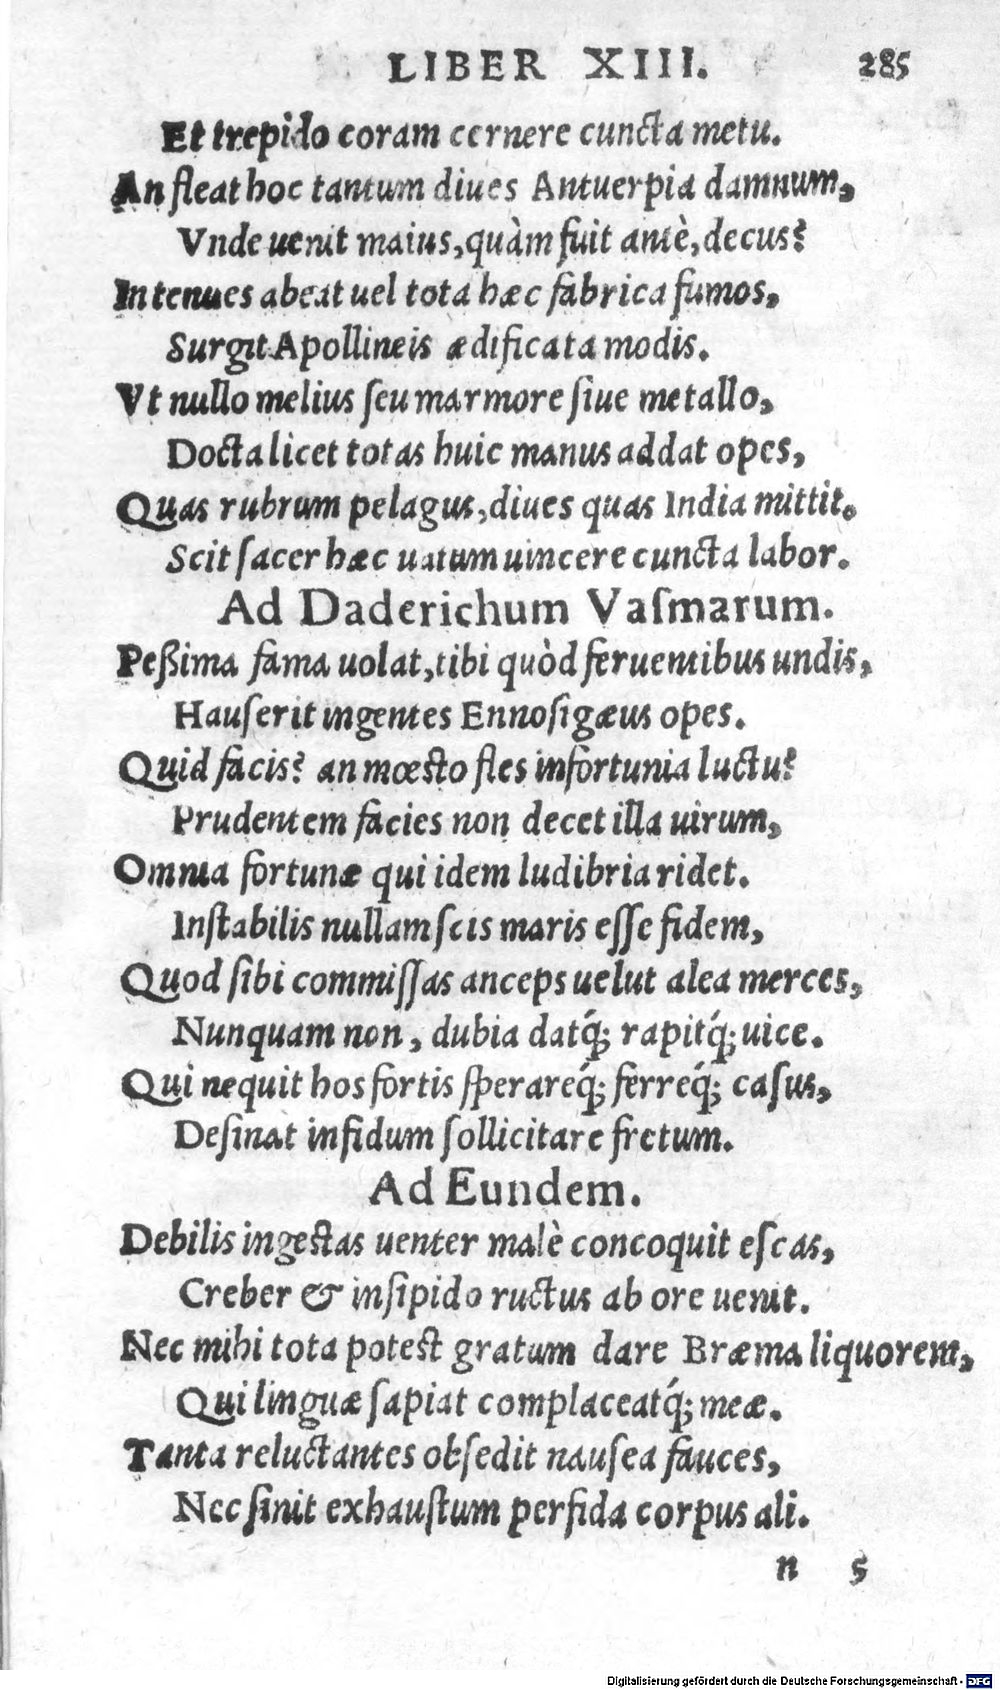 LIBER XIII. 285
Et trepido coram cernere cuncta metu.
An fleat hoc tantum diues Antuerpia damnum,
Vnde uenit maius, quàm fuit antè, decus?
In tenues abeat uel tota hæc fabrica fumos,
Surgit Apollineis ædificata modis.
Vt nullo melius ſeu marmore ſiue metallo,
Docta licet totas huic manus addat opes,
Quas rubrum pelagus, diues quas India mittit.
Scit ſacer hæc uatum uincere cuncta labor.
Ad Daderichum Vaſmarum.
Peßima fama uolat, tibi quòd feruentibus undis,
Hauſerit ingentes Ennoſigæus opes.
Quid facis? an mœſto fles infortunia luctu?
Prudentem facies non decet illa uirum,
Omnia fortunæ qui idem ludibria ridet.
Inſtabilis nullam ſcis maris eſſe fidem,
Quod ſibi commiſſas anceps uelut alea merces,
Nunquam non, dubia datq́; rapitq́; uice.
Qui nequit hos fortis ſperareq́; ferreq́; caſus,
Deſinat infidum ſollicitare fretum.
Ad Eundem.
Debilis ingeſtas uenter malè concoquit eſcas,
Creber & inſipido ructus ab ore uenit.
Nec mihi tota poteſt gratum dare Bræma liquorem,
Qui linguæ ſapiat complaceatq́; meæ.
Tanta reluctantes obſedit nauſea fauces,
Nec ſinit exhauſtum perfida corpus ali.
n 5
Digitalisierung gefördert durch die Deutsche Forschungsgemeinschaft - DFG